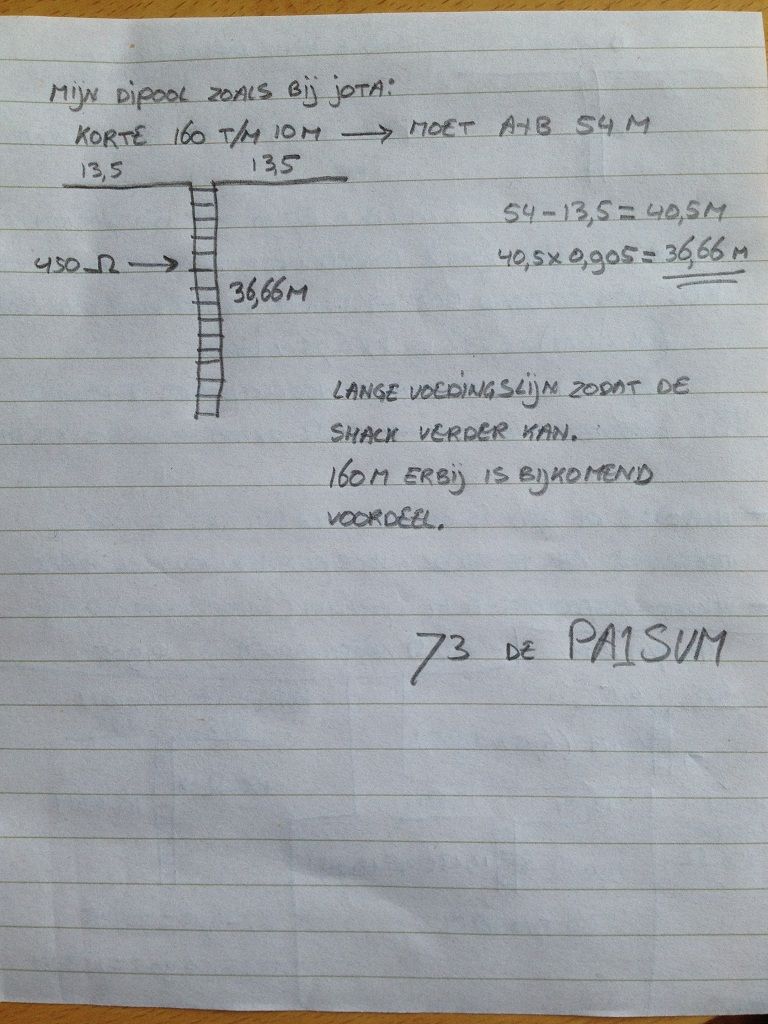 Mijn Dipool zoals Bij jOTA:
KORTE 160 T/M 10M → MOET A+B 54M
13,5 13,5
54 - 13,5 = 40,5M
40,5 x 0,905 = 36,66 M
450 Ω →
36,66M
LANGE VOEDINGSLIJN ZODAT DE
SHACK VERDER KAN.
160M ERBIJ IS BIJKOMEND
VOORDEEL.
73 DE PA1SVM